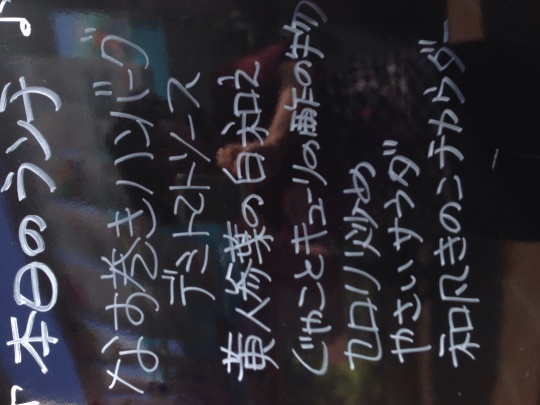 本日のランチ
なす巻きハンバーグ
デミトマトソース
黄人参葉の白和え
じゃことキューリの酢の物
セロリ炒め
やさいサラダ
和風きのこチャウダー